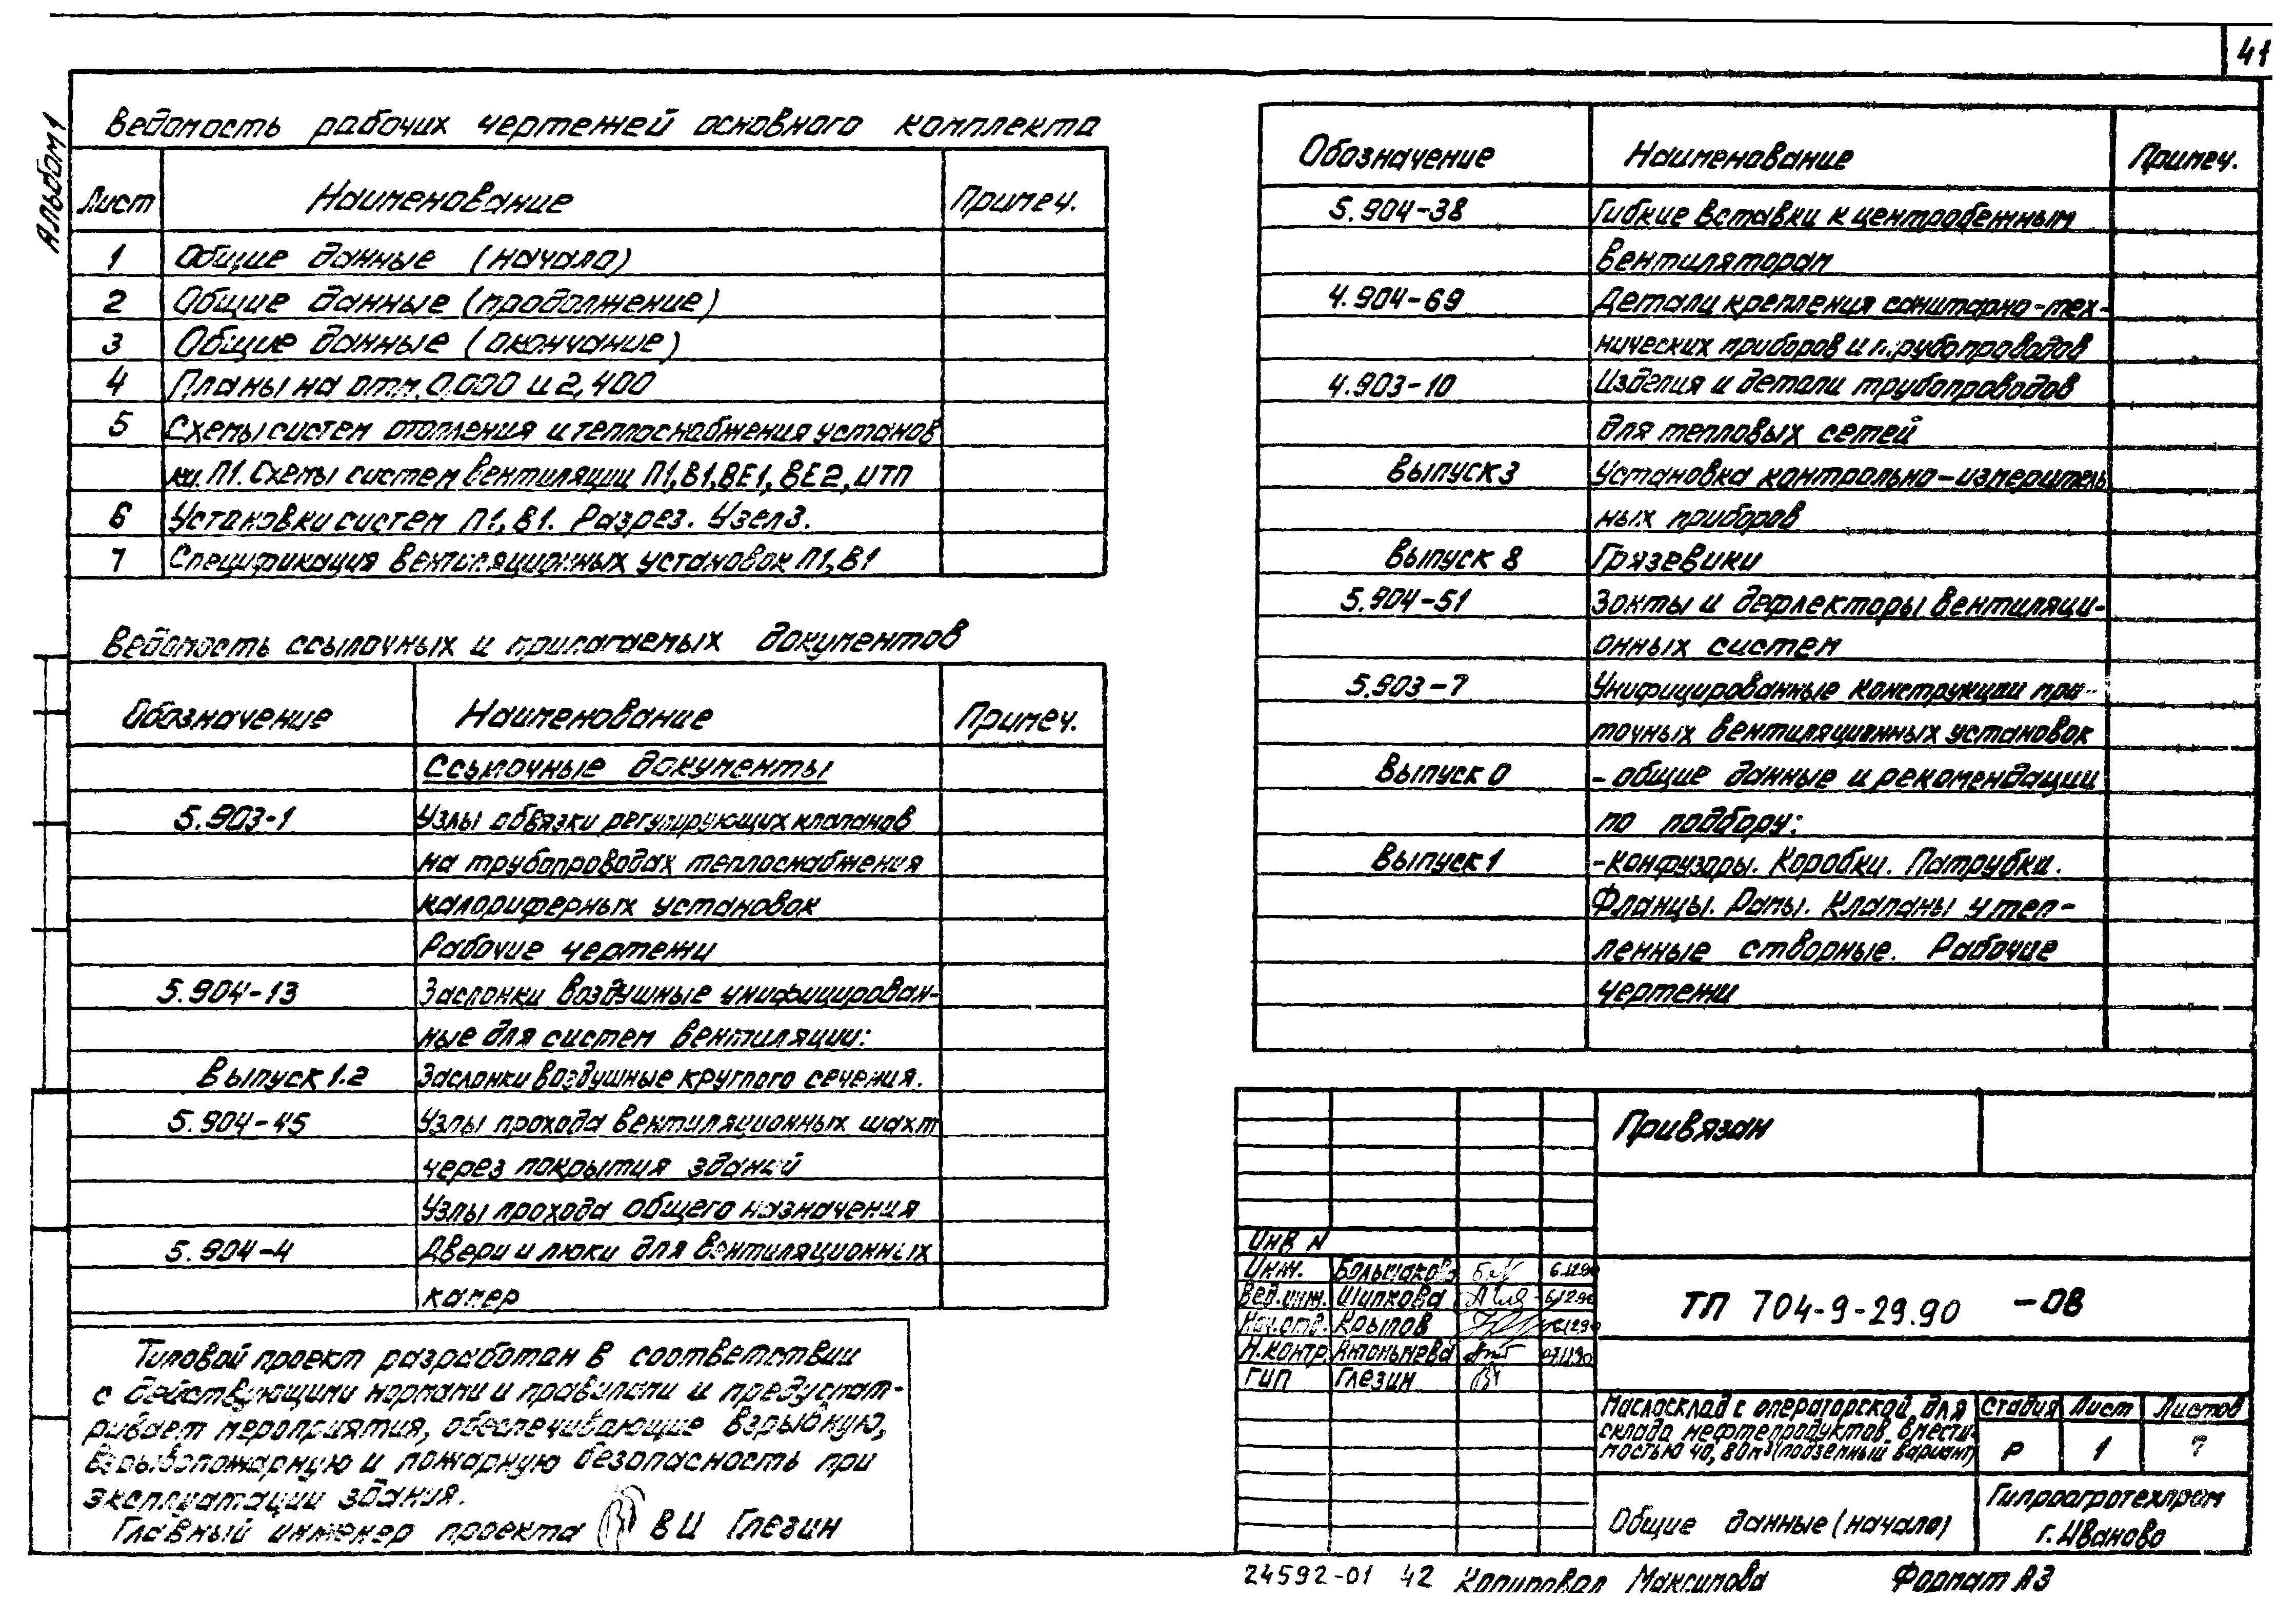 41
Альбом 1
Ведомость рабочих чертежей основного комплекта
Лист Наименование Примеч.
1 Общие данные (начало)
2 Общие данные (продолжение)
3 Общие данные (окончание)
4 Планы на отм. 0.000 и 2,400
5 Схемы систем отопления и теплоснабжения установ
ки П1. Схемы систем вентиляции П1, В1, ВЕ1, ВЕ2, ИТП
6 Установки систем П1, В1. Разрез. Узел 3.
7 Спецификация вентиляционных установок П1, В1
Ведомость ссылочных и прилагаемых документов
Обозначение Наименование Примеч.
Ссылочные документы
5.903-1 Узлы обвязки регулирующих клапанов
на трубопроводах теплоснабжения
калориферных установок
Рабочие чертежи
5.904-13 Заслонки воздушные унифицирован-
ные для систем вентиляции:
Выпуск 1.2 Заслонки воздушные круглого сечения.
5.904-45 Узлы прохода вентиляционных шахт
через покрытия зданий
Узлы прохода общего назначения
5.904-4 Двери и люки для вентиляционных
камер
Типовой проект разработан в соответствии
с действующими нормами и правилами и предусмат-
ривает мероприятия, обеспечивающие взрывную,
взрывопожарную и пожарную безопасность при
эксплуатации здания.
Главный инженер проекта В И Глезин
Обозначение Наименование Примеч.
5.904-38 Гибкие вставки к центробежным
вентиляторам
4.904-69 Детали крепления санитарно-тех-
нических приборов и трубопроводов
4.903-10 Изделия и детали трубопроводов
для тепловых сетей
Выпуск 3 Установка контрольно-измеритель
ных приборов
Выпуск 8 Грязевики
5.904-51 Зонты и дефлекторы вентиляци-
онных систем
5.903-7 Унифицированные конструкции при-
точных вентиляционных установок
Выпуск 0 - общие данные и рекомендации
по подбору:
Выпуск 1 - Конфузоры. Коробки. Патрубки.
Фланцы. Рамы. Клапаны утеп-
ленные створные. Рабочие
чертежи
Привязан
Инв N
Инж. Большакова 6.12.90
Вед.инж. Шипкова 6.12.90
Нач.отд. Крылов 6.12.90
Н.контр. Антоньнева
ГИП Глезин
ТП 704-9-29.90 -ОВ
Маслосклад с операторской для
склада нефтепродуктов вмести-
мостью 40, 80м³ (подземный вариант)
Стадия Лист Листов
Р 1 7
Общие данные (начало)
Гипроагротехпром
г. Иваново
24592-01 42 Копировал Максимова Формат А3